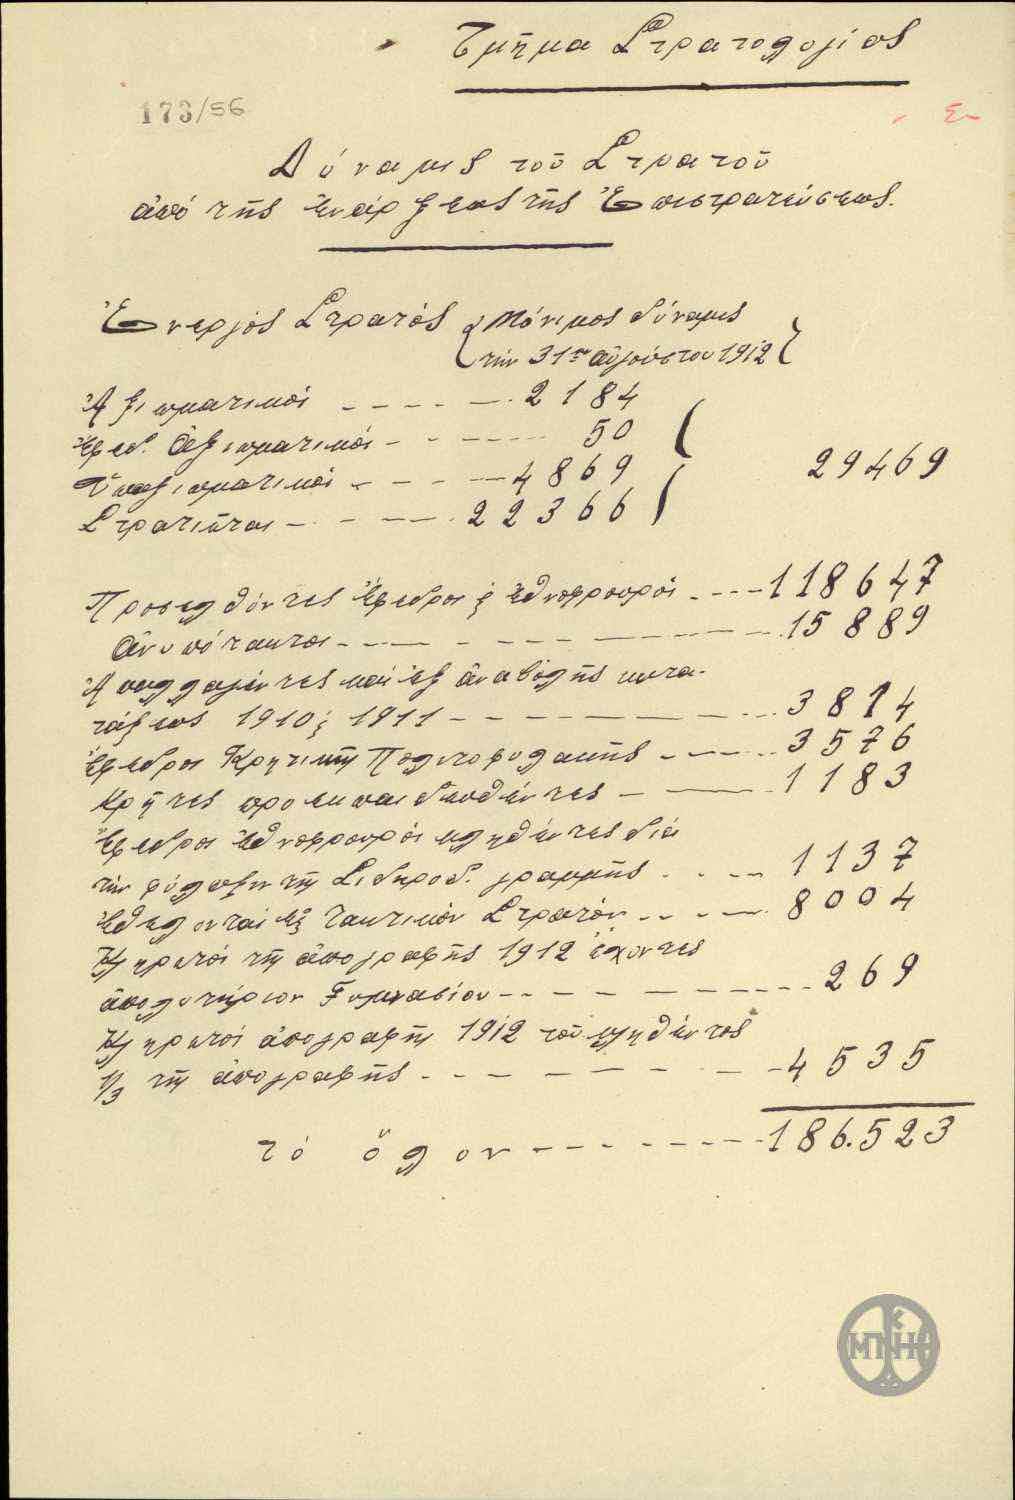 Τμῆμα Στρατολογίας
173/56
Δύναμις τοῦ Στρατοῦ
ἀπό τῆς ἐνάρξεως τῆς Ἐπιστρατεύσεως.
Ἐνεργός Στρατός { Μόνιμος δύναμις
τήν 31ην αὐγούστου 1912 }
Ἀξιωματικοί - - - - - 2184
Ἔφεδ. Ἀξιωματικοί - - - - - 50
Ὑπαξιωματικοί - - - - - 4869
Στρατιῶται - - - - - 22366
29469
Προσελθόντες Ἔφεδροι ϗ ἐθνοφρουροί - - - - 118647
Ἀνυπότακτοι - - - - - - - 15889
Ἀπαλλαγέντες καί ἐξ ἀναβολῆς κατα-
τάξεως 1910 ϗ 1911 - - - - - - 3814
Ἔφεδροι Κρητικῆς Πολιτοφυλακῆς - - - - 3576
Κρῆτες προεκπαιδευθέντες - - - 1183
Ἔφεδροι ἐθνοφρουροί κληθέντες διά
τήν φύλαξιν τῆς Σιδηροδ. γραμμῆς - - - - 1137
Ἐθελονταί εἰς Τακτικόν Στρατόν - - - - 8004
Κληρωτοί τῆς ἀπογραφῆς 1912 ἔχοντες
ἀπολυτήριον Γυμνασίου - - - - - - - 269
Κληρωτοί ἀπογραφῆς 1912 τοῦ κληθέντος
1/3 τῆς ἀπογραφῆς - - - - - - - 4535
τό ὅλον - - - - - - - 186.523
ΜΠΝΗΕ